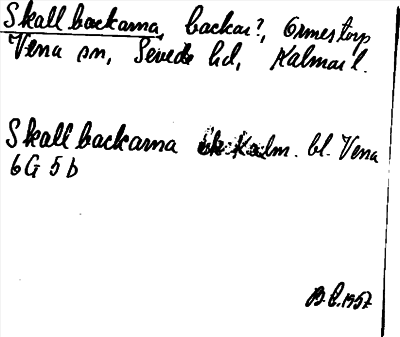 Skallbackarna, backar?, Ormestorp
Vena sn, Sevede hd, Kalmar l.
Skallbackarna ek Kalm. bl. Vena
6G 5b
B.E. 1957